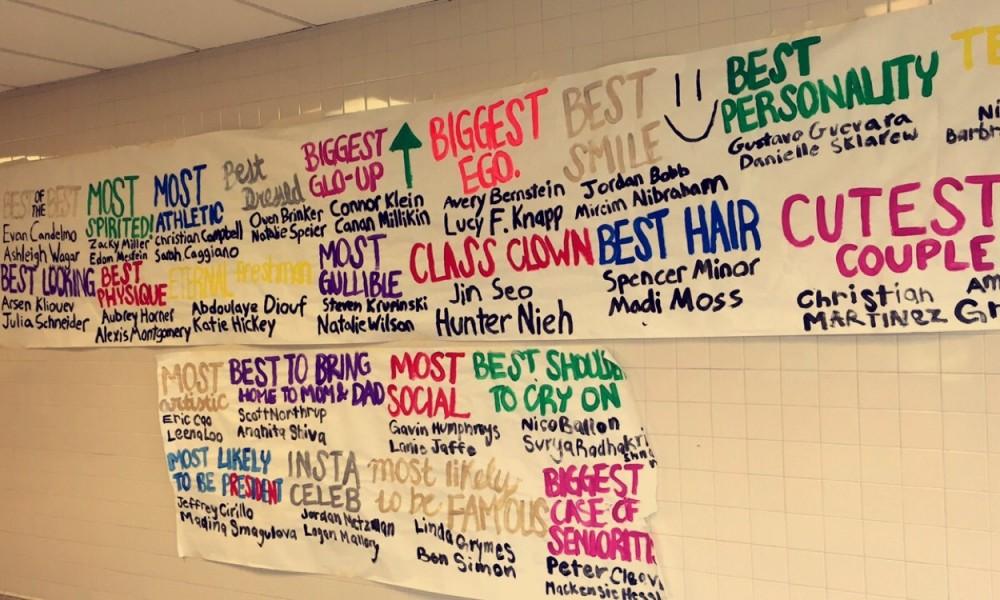 BEST OF THE BEST
Evan Candelmo
Ashleigh Wagar
MOST
SPIRITED!
Zacky Miller
Edom Mesfin
MOST
ATHLETIC
Christian Campbell
Sarah Caggiano
Best
Dressed
Oven Brinker
Natalie Speier
BIGGEST
GLO-UP
Connor Klein
Canan Millikin
BIGGEST
EGO.
Avery Bernstein
Lucy F. Knapp
BEST
SMILE
Jordan Bobb
Miriam Alibraham
BEST
PERSONALITY
Gustavo Guevara
Danielle Sklarew
BEST LOOKING
Arsen Kliouev
Julia Schneider
BEST
PHYSIQUE
Aubrey Horner
Alexis Montgomery
ETERNAL freshman
Abdoulaye Diouf
Katie Hickey
MOST
GULLIBLE
Steven Krupinski
Natalie Wilson
CLASS CLOWN
Jin Seo
Hunter Nieh
BEST HAIR
Spencer Minor
Madi Moss
CUTEST
COUPLE
Christian
MARTINEZ
MOST
artistic
Eric Cao
Leena Loo
BEST TO BRING
HOME TO MOM & DAD
Scott Northrup
Anahita Shiva
MOST
SOCIAL
Gavin Humphreys
Lanie Jaffe
BEST SHOULD
TO CRY ON
Nico Ballon
Surya Radhakri
MOST LIKELY
TO BE PRESIDENT
Jeffrey Cirillo
Madina Smagulova
INSTA
CELEB
Jordan Netzman
Logan Mallory
most likely
to be FAMOUS
Linda Grymes
Ben Simon
BIGGEST
CASE OF
SENIORITI
Peter Cleav
Mackenzie Hessl